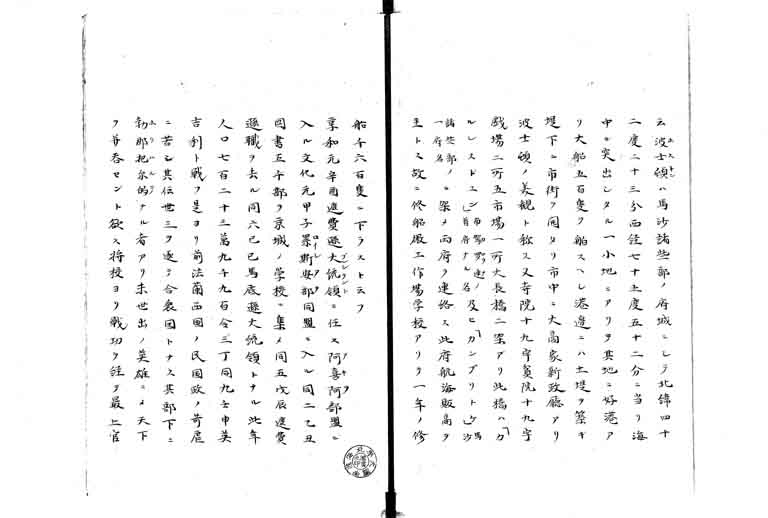 云波士頓ハ馬沙諸些部ノ府城ニシテ北緯四十
二度二十三分西経七十土度五十二分ニ当リ海
中ニ突出シタル一小地ニアリ其地ニ好港ア
リ大船五百隻ヲ舶スヘシ港邉ニハ土堤ヲ築キ
堤下ニ市街ヲ開タリ市中ニ大高家新政廳アリ
波士頓ノ美観ト称ス又寺院十九宇貧院十九宇
戯場二所五市場一所大長橋二架アリ此橋ハカ
ルレストエン及ヒカンブリトケ
諸些部ノ一府名ニ架メ両府ヲ連絡ス此府航海販高ヲ
主トス故ニ修船廠工作場学校アリテ一年ノ修
船千六百隻ニ下ラストミフ
享和元辛酉遮費遜大統領ニ任ス阿喜阿部盟ニ
入ル文化元甲子累斯安部同盟ニ入ル同二乙丑
図書五千部ヲ京城ノ学校ニ集メ同五戊辰遮費
遜職ヲ去ル同六己巳馬底遜大統領トナル此年
人口七百二十三萬九千九百令三丁同九壬申英
吉利ト戦フ是ヨリ前法蘭西國ノ民国政ノ苛虐
ニ苦シ其位世三ヲ逐テ合衆国トナス其部下ニ
勃那把尓的ナル者アリ未世出ノ英雄ニメ天下
ヲ并呑セント欲ス将校ヨリ戦功ヲ経テ最上官